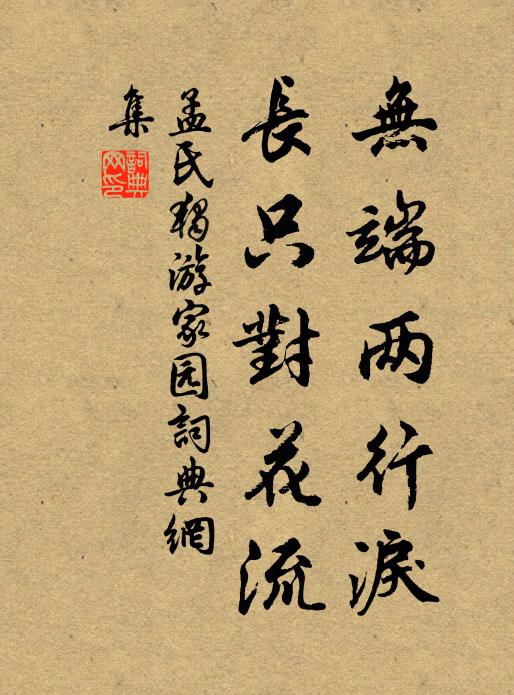 無端两行淚
長只對花流
孟氏獨游家园詞典網
集
詞典网印